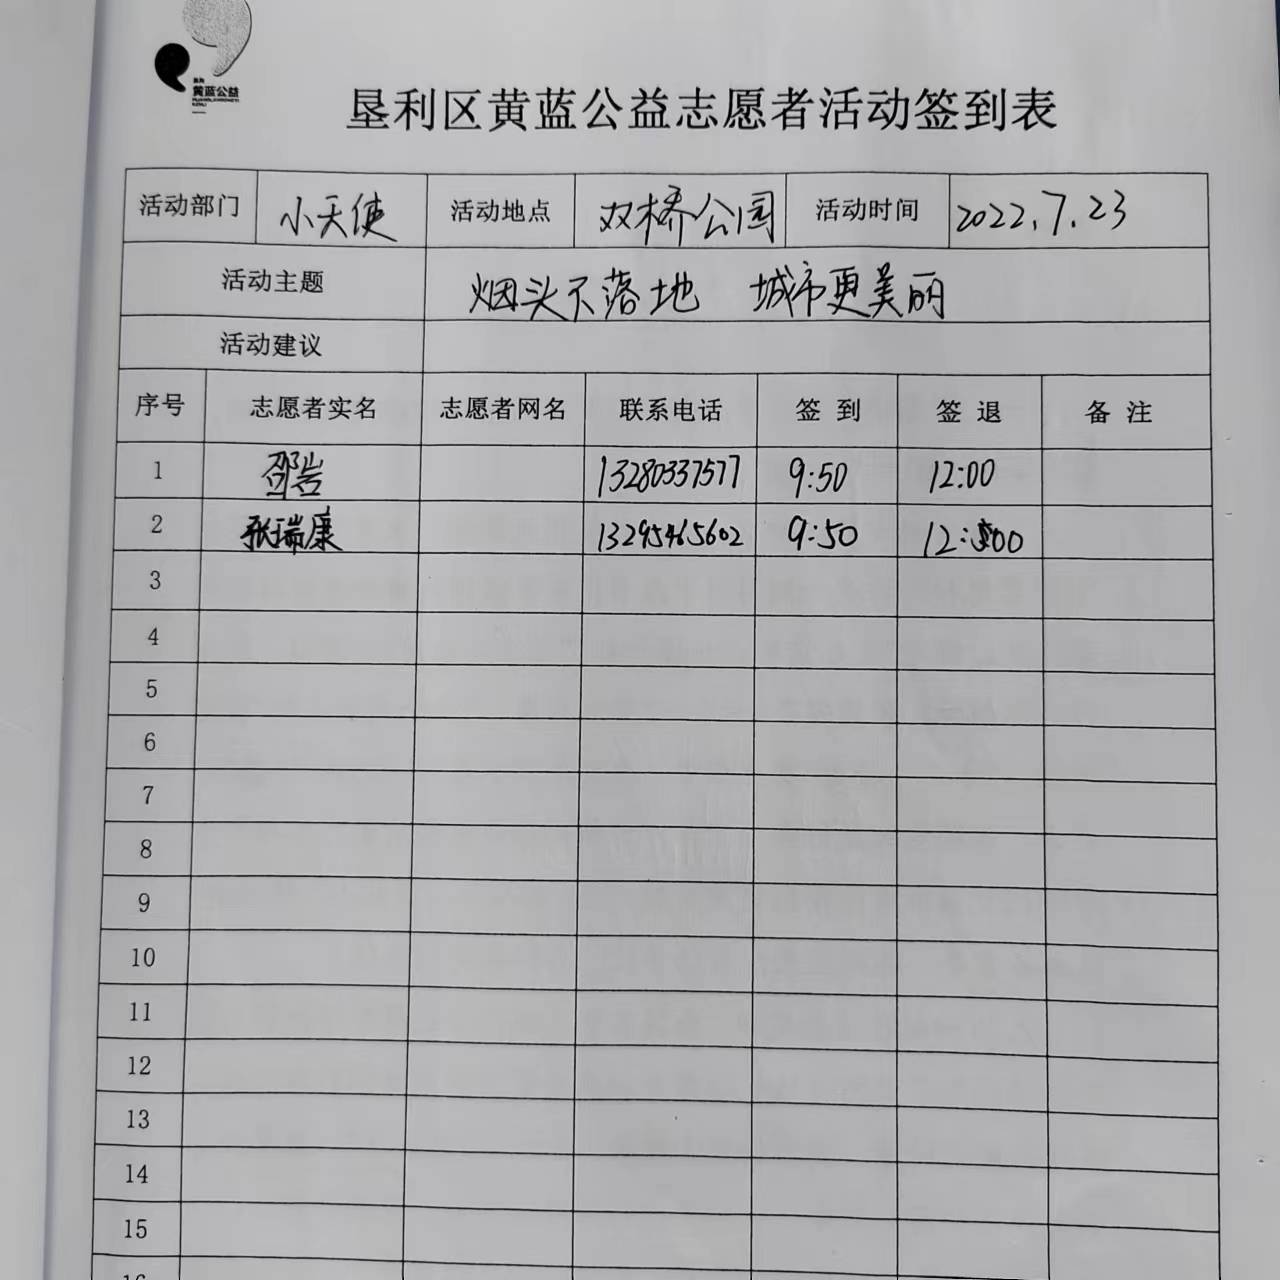 垦利
黄蓝公益
垦利区黄蓝公益志愿者活动签到表
活动部门 小天使 活动地点 双桥公园 活动时间 2022.7.23
活动主题 烟头不落地 城市更美丽
活动建议
序号 志愿者实名 志愿者网名 联系电话 签到 签退 备注
1 邵岩 13280337577 9:50 12:00
2 张瑞康 13295465602 9:50 12:00
3
4
5
6
7
8
9
10
11
12
13
14
15
16